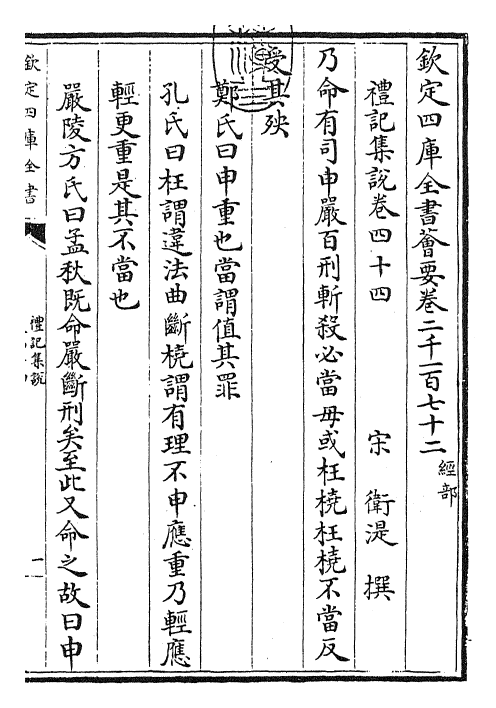 欽定四庫全書薈要卷二千一百七十二 經部
禮記集說卷四十四 宋 衛湜 撰
乃命有司申嚴百刑斬殺必當毋或枉橈枉橈不當反
受其殃
鄭氏曰申重也當謂值其罪
孔氏曰枉謂違法曲斷橈謂有理不申應重乃輕應
輕更重是其不當也
嚴陵方氏曰孟秋既命嚴斷刑矣至此又命之故曰申
欽定四庫全書
禮記集說
一